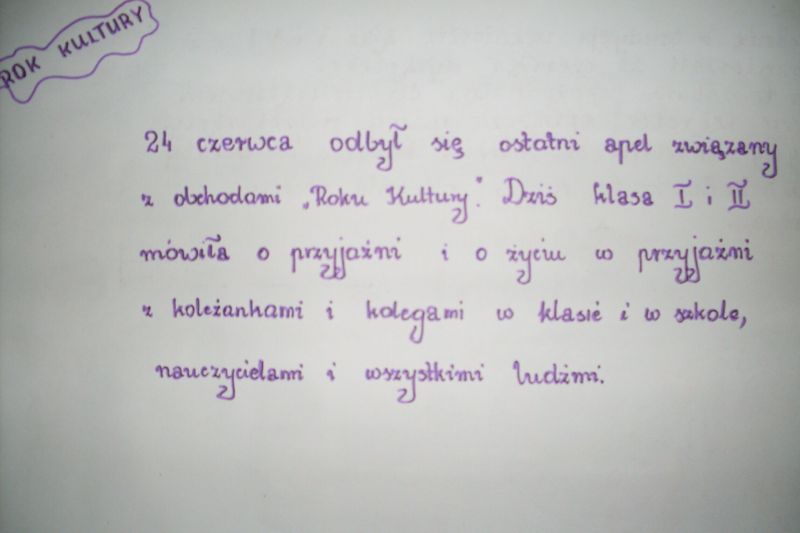 ROK KULTURY
24 czerwca odbył się ostatni apel związany
z obchodami „Roku Kultury”. Dziś klasa I i II
mówiła o przyjaźni i o życiu w przyjaźni
z koleżankami i kolegami w klasie i w szkole,
nauczycielami i wszystkimi ludźmi.